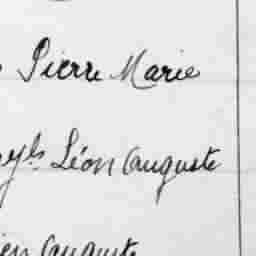 Pierre Marie
Léon Auguste
Auguste